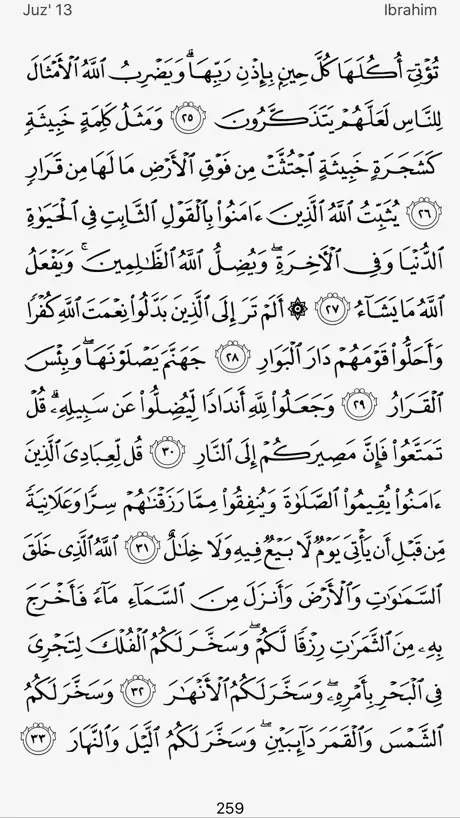 Juz' 13 Ibrahim
تُؤْتِىٓ أُكُلَهَا كُلَّ حِينٍۭ بِإِذْنِ رَبِّهَا ۗ وَيَضْرِبُ ٱللَّهُ ٱلْأَمْثَالَ
لِلنَّاسِ لَعَلَّهُمْ يَتَذَكَّرُونَ ٢٥ وَمَثَلُ كَلِمَةٍ خَبِيثَةٍ
كَشَجَرَةٍ خَبِيثَةٍ ٱجْتُثَّتْ مِن فَوْقِ ٱلْأَرْضِ مَا لَهَا مِن قَرَارٍ
٢٦ يُثَبِّتُ ٱللَّهُ ٱلَّذِينَ ءَامَنُوا۟ بِٱلْقَوْلِ ٱلثَّابِتِ فِى ٱلْحَيَوٰةِ
ٱلدُّنْيَا وَفِى ٱلْـَٔاخِرَةِ ۖ وَيُضِلُّ ٱللَّهُ ٱلظَّـٰلِمِينَ ۚ وَيَفْعَلُ
ٱللَّهُ مَا يَشَآءُ ٢٧ ۞ أَلَمْ تَرَ إِلَى ٱلَّذِينَ بَدَّلُوا۟ نِعْمَتَ ٱللَّهِ كُفْرًا
وَأَحَلُّوا۟ قَوْمَهُمْ دَارَ ٱلْبَوَارِ ٢٨ جَهَنَّمَ يَصْلَوْنَهَا ۖ وَبِئْسَ
ٱلْقَرَارُ ٢٩ وَجَعَلُوا۟ لِلَّهِ أَندَادًا لِّيُضِلُّوا۟ عَن سَبِيلِهِۦ ۗ قُلْ
تَمَتَّعُوا۟ فَإِنَّ مَصِيرَكُمْ إِلَى ٱلنَّارِ ٣٠ قُل لِّعِبَادِىَ ٱلَّذِينَ
ءَامَنُوا۟ يُقِيمُوا۟ ٱلصَّلَوٰةَ وَيُنفِقُوا۟ مِمَّا رَزَقْنَـٰهُمْ سِرًّا وَعَلَانِيَةً
مِّن قَبْلِ أَن يَأْتِىَ يَوْمٌ لَّا بَيْعٌ فِيهِ وَلَا خِلَـٰلٌ ٣١ ٱللَّهُ ٱلَّذِى خَلَقَ
ٱلسَّمَـٰوَٰتِ وَٱلْأَرْضَ وَأَنزَلَ مِنَ ٱلسَّمَآءِ مَآءً فَأَخْرَجَ
بِهِۦ مِنَ ٱلثَّمَرَٰتِ رِزْقًا لَّكُمْ ۖ وَسَخَّرَ لَكُمُ ٱلْفُلْكَ لِتَجْرِىَ
فِى ٱلْبَحْرِ بِأَمْرِهِۦ ۖ وَسَخَّرَ لَكُمُ ٱلْأَنْهَـٰرَ ٣٢ وَسَخَّرَ لَكُمُ
ٱلشَّمْسَ وَٱلْقَمَرَ دَآئِبَيْنِ ۖ وَسَخَّرَ لَكُمُ ٱلَّيْلَ وَٱلنَّهَارَ ٣٣
259